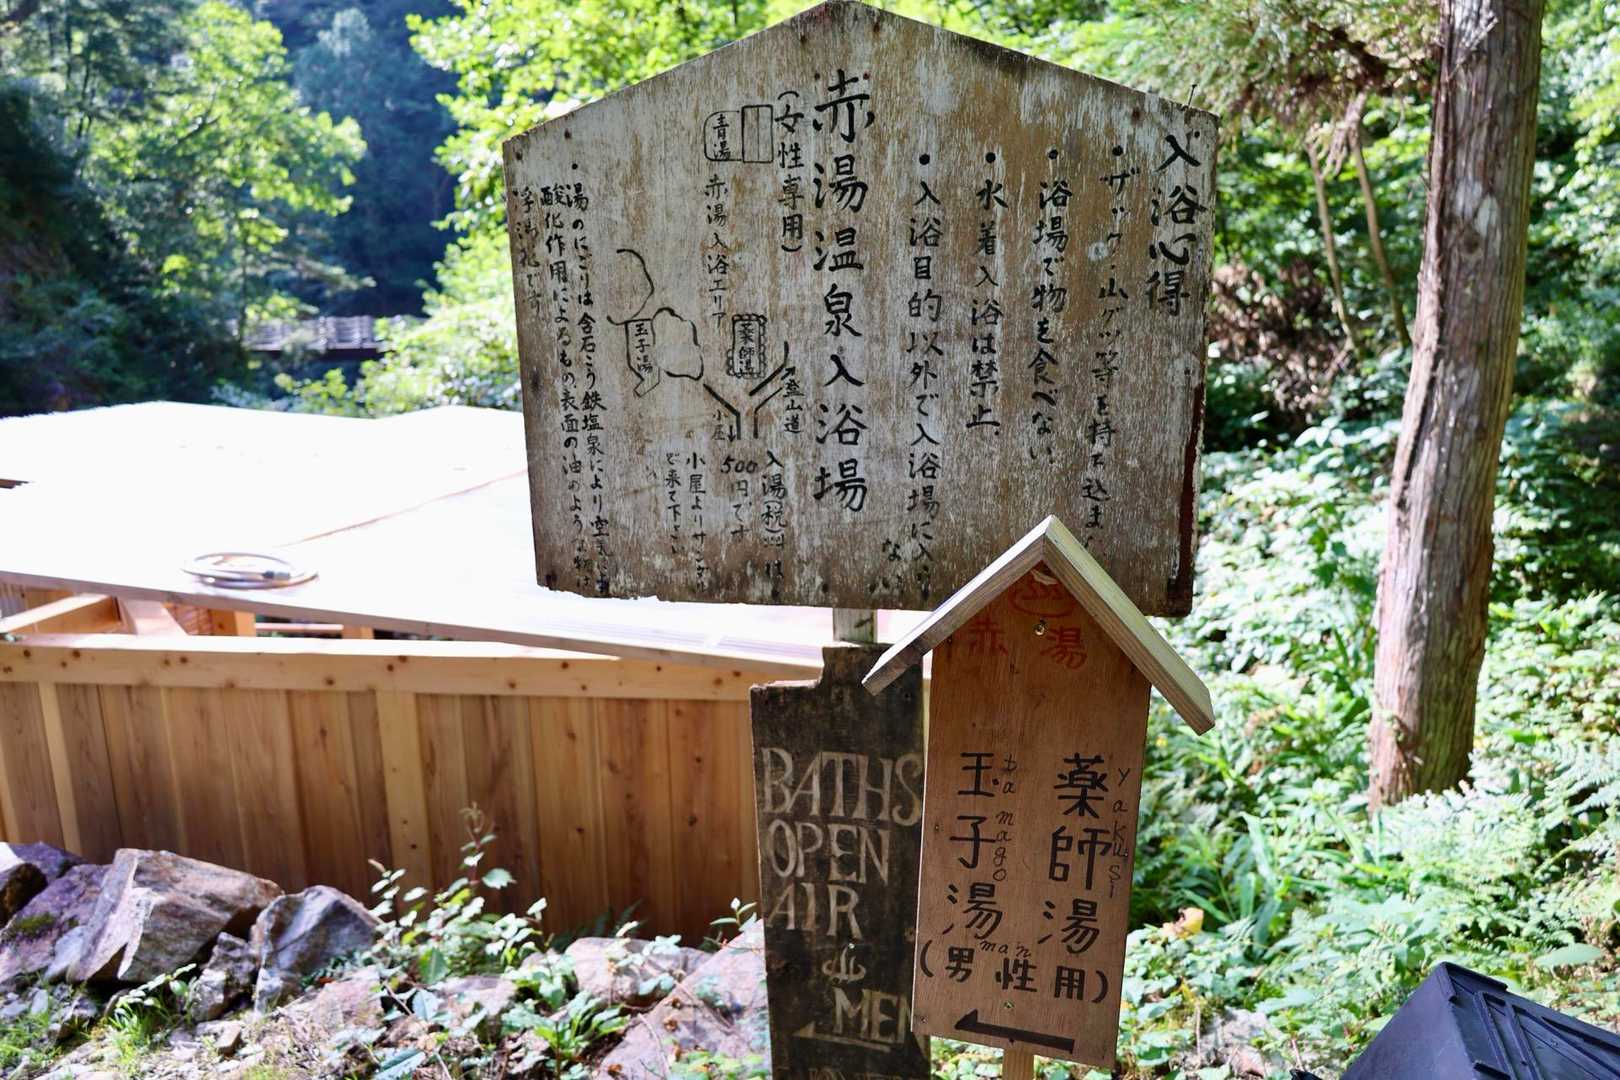 入浴心得
・ザック・山グツ等を持ち込ま
・浴場で物を食べない
・水着入浴は禁止
・入浴目的以外で入浴場に入ら
ない
赤湯温泉入浴場
(女性専用)
青湯
赤湯入浴エリア
薬師湯
玉子湯
登山道
小屋
入湯(税)料は
500円です
小屋よりサンダル
で来て下さい
・湯のにごりは含石こう鉄塩泉により空気に
酸化作用によるもの、表面の油のような物は
浮湯花です
赤湯
薬師湯
yakusi
玉子湯
tamago
(男性用)
man
BATHS
OPEN
AIR
MEN